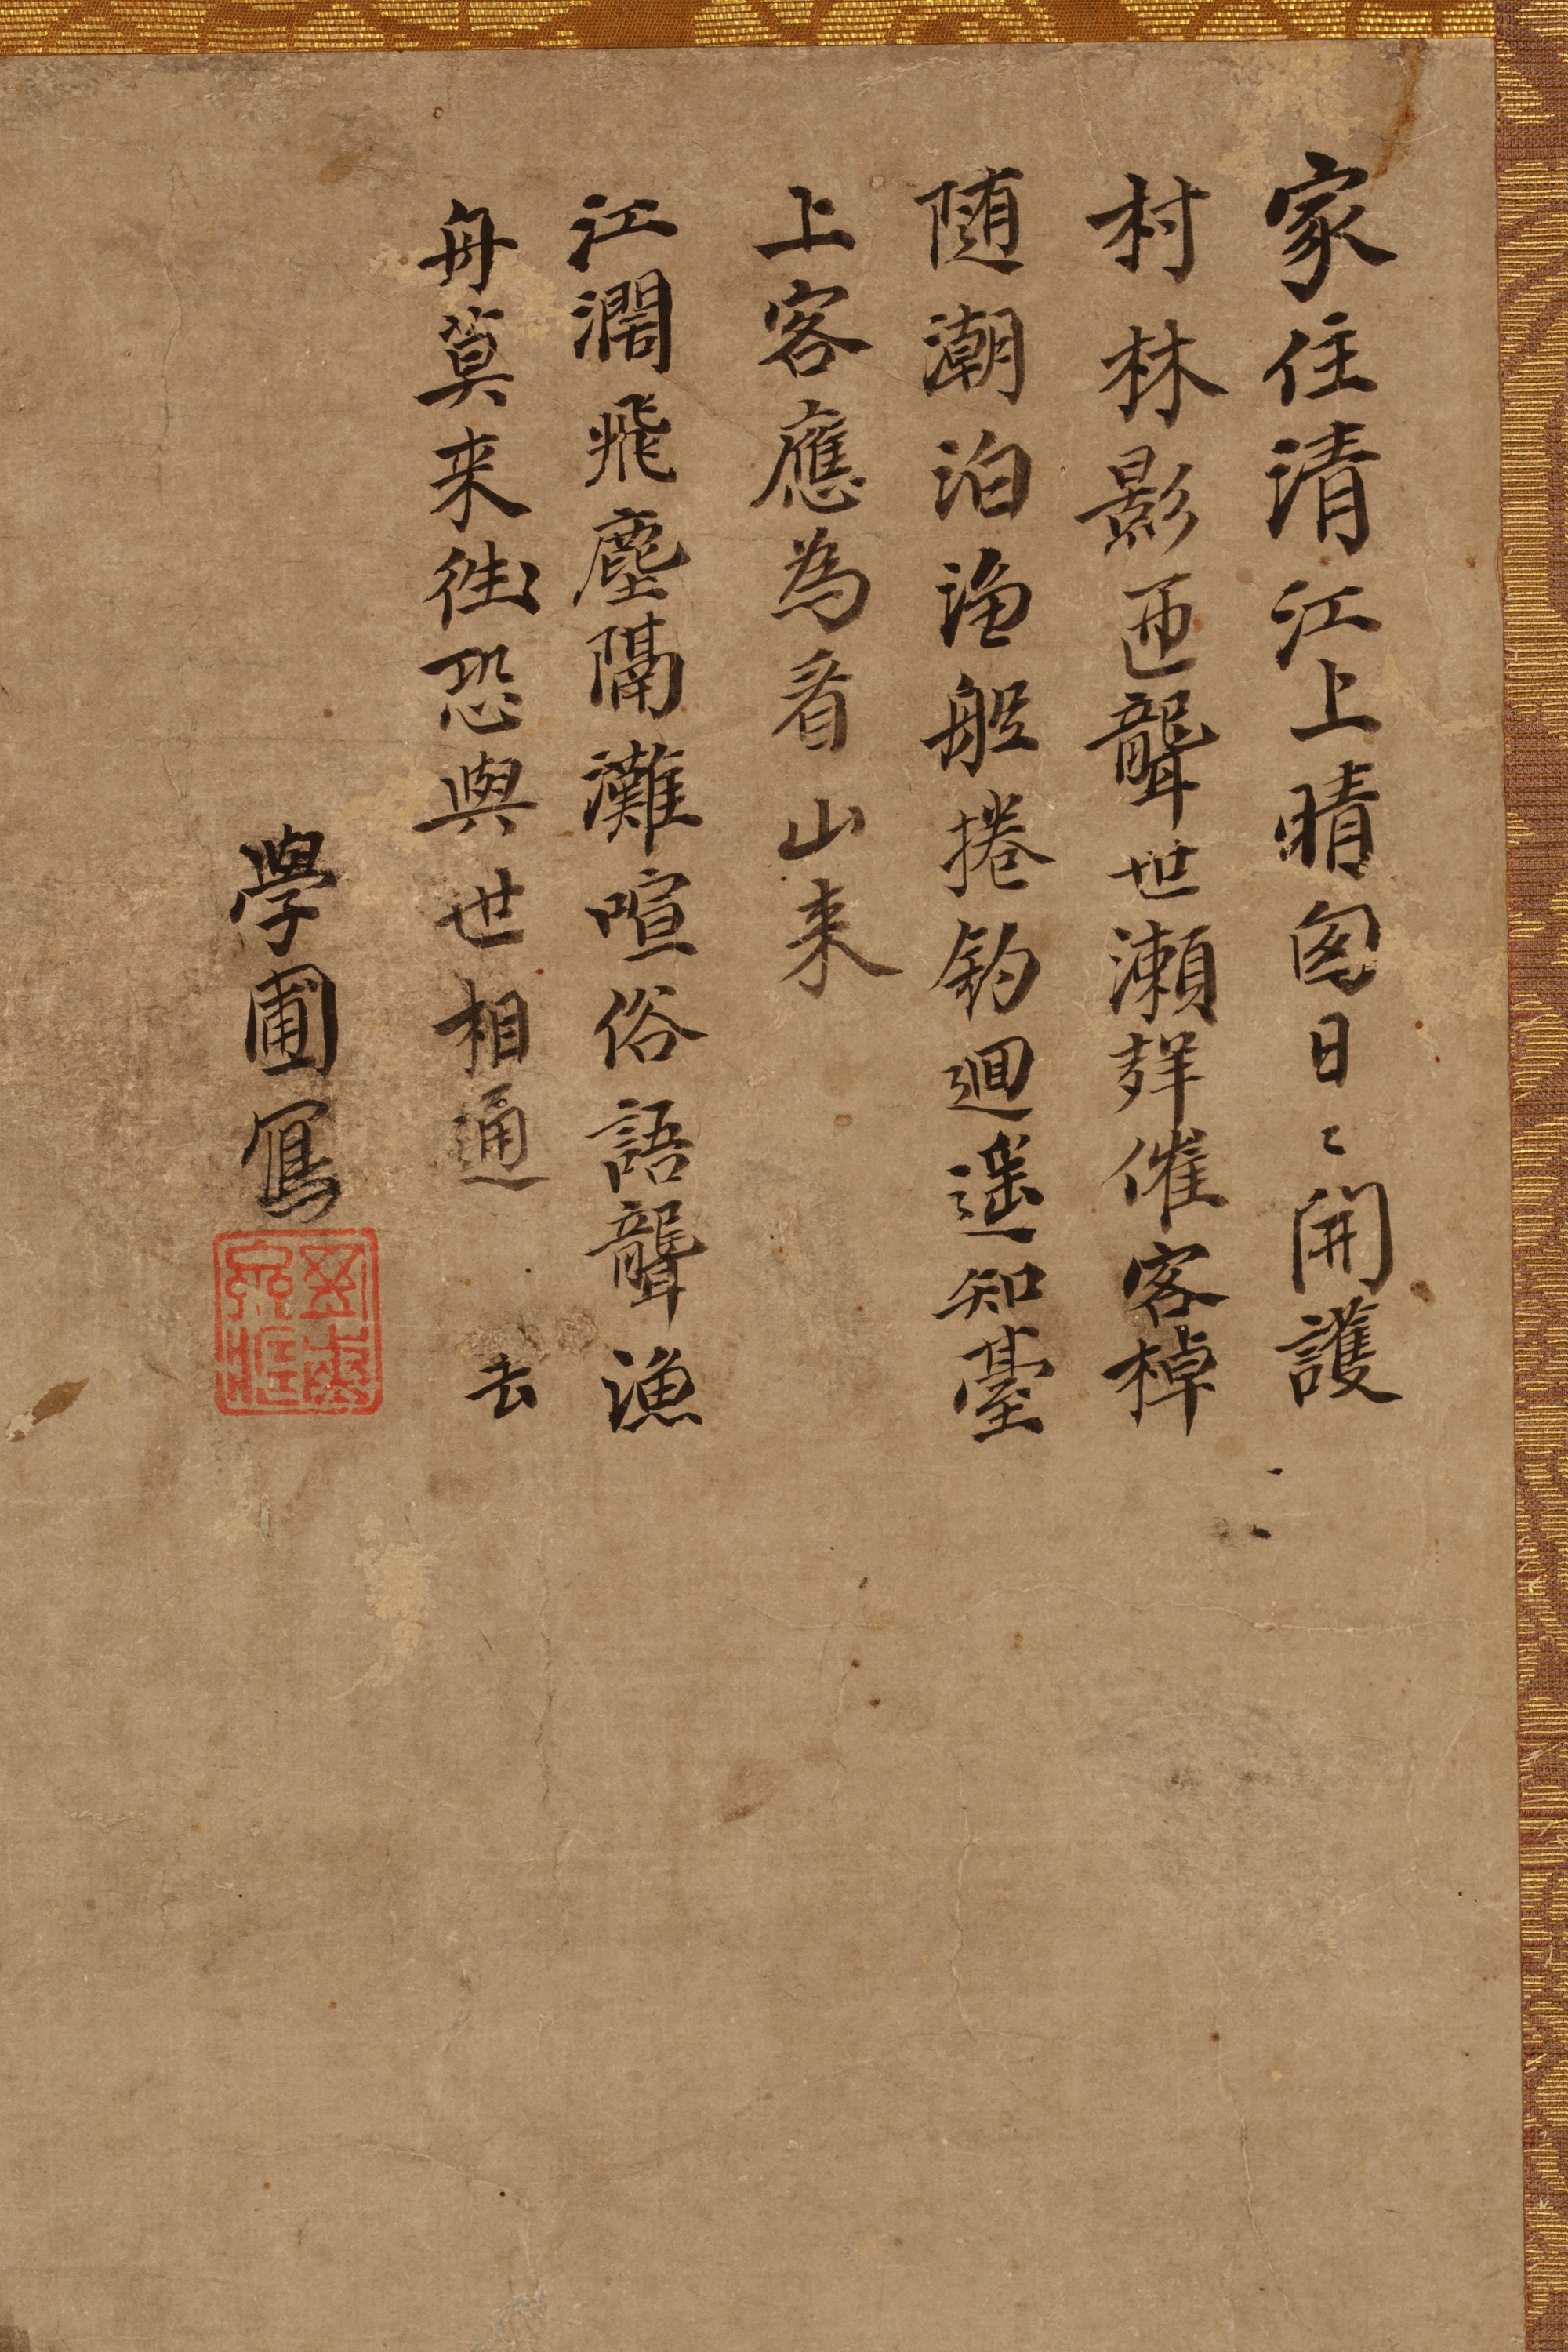 家住清江上晴囱日〻開護
村林影匝聾世瀬聲催客棹
随潮泊漁船捲釣廻遥知臺
上客應為看山来
江濶飛塵隔灘喧俗語聾漁
舟莫来往恐與世相通 去
學圃寫